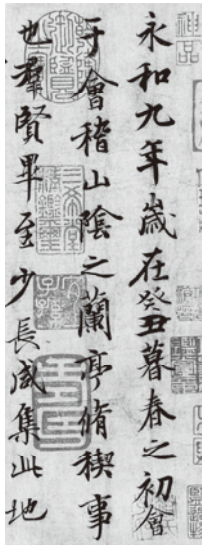 永和九年歲在癸丑暮春之初會
于會稽山陰之蘭亭脩稧事
也羣賢畢至少長咸集此地
神品